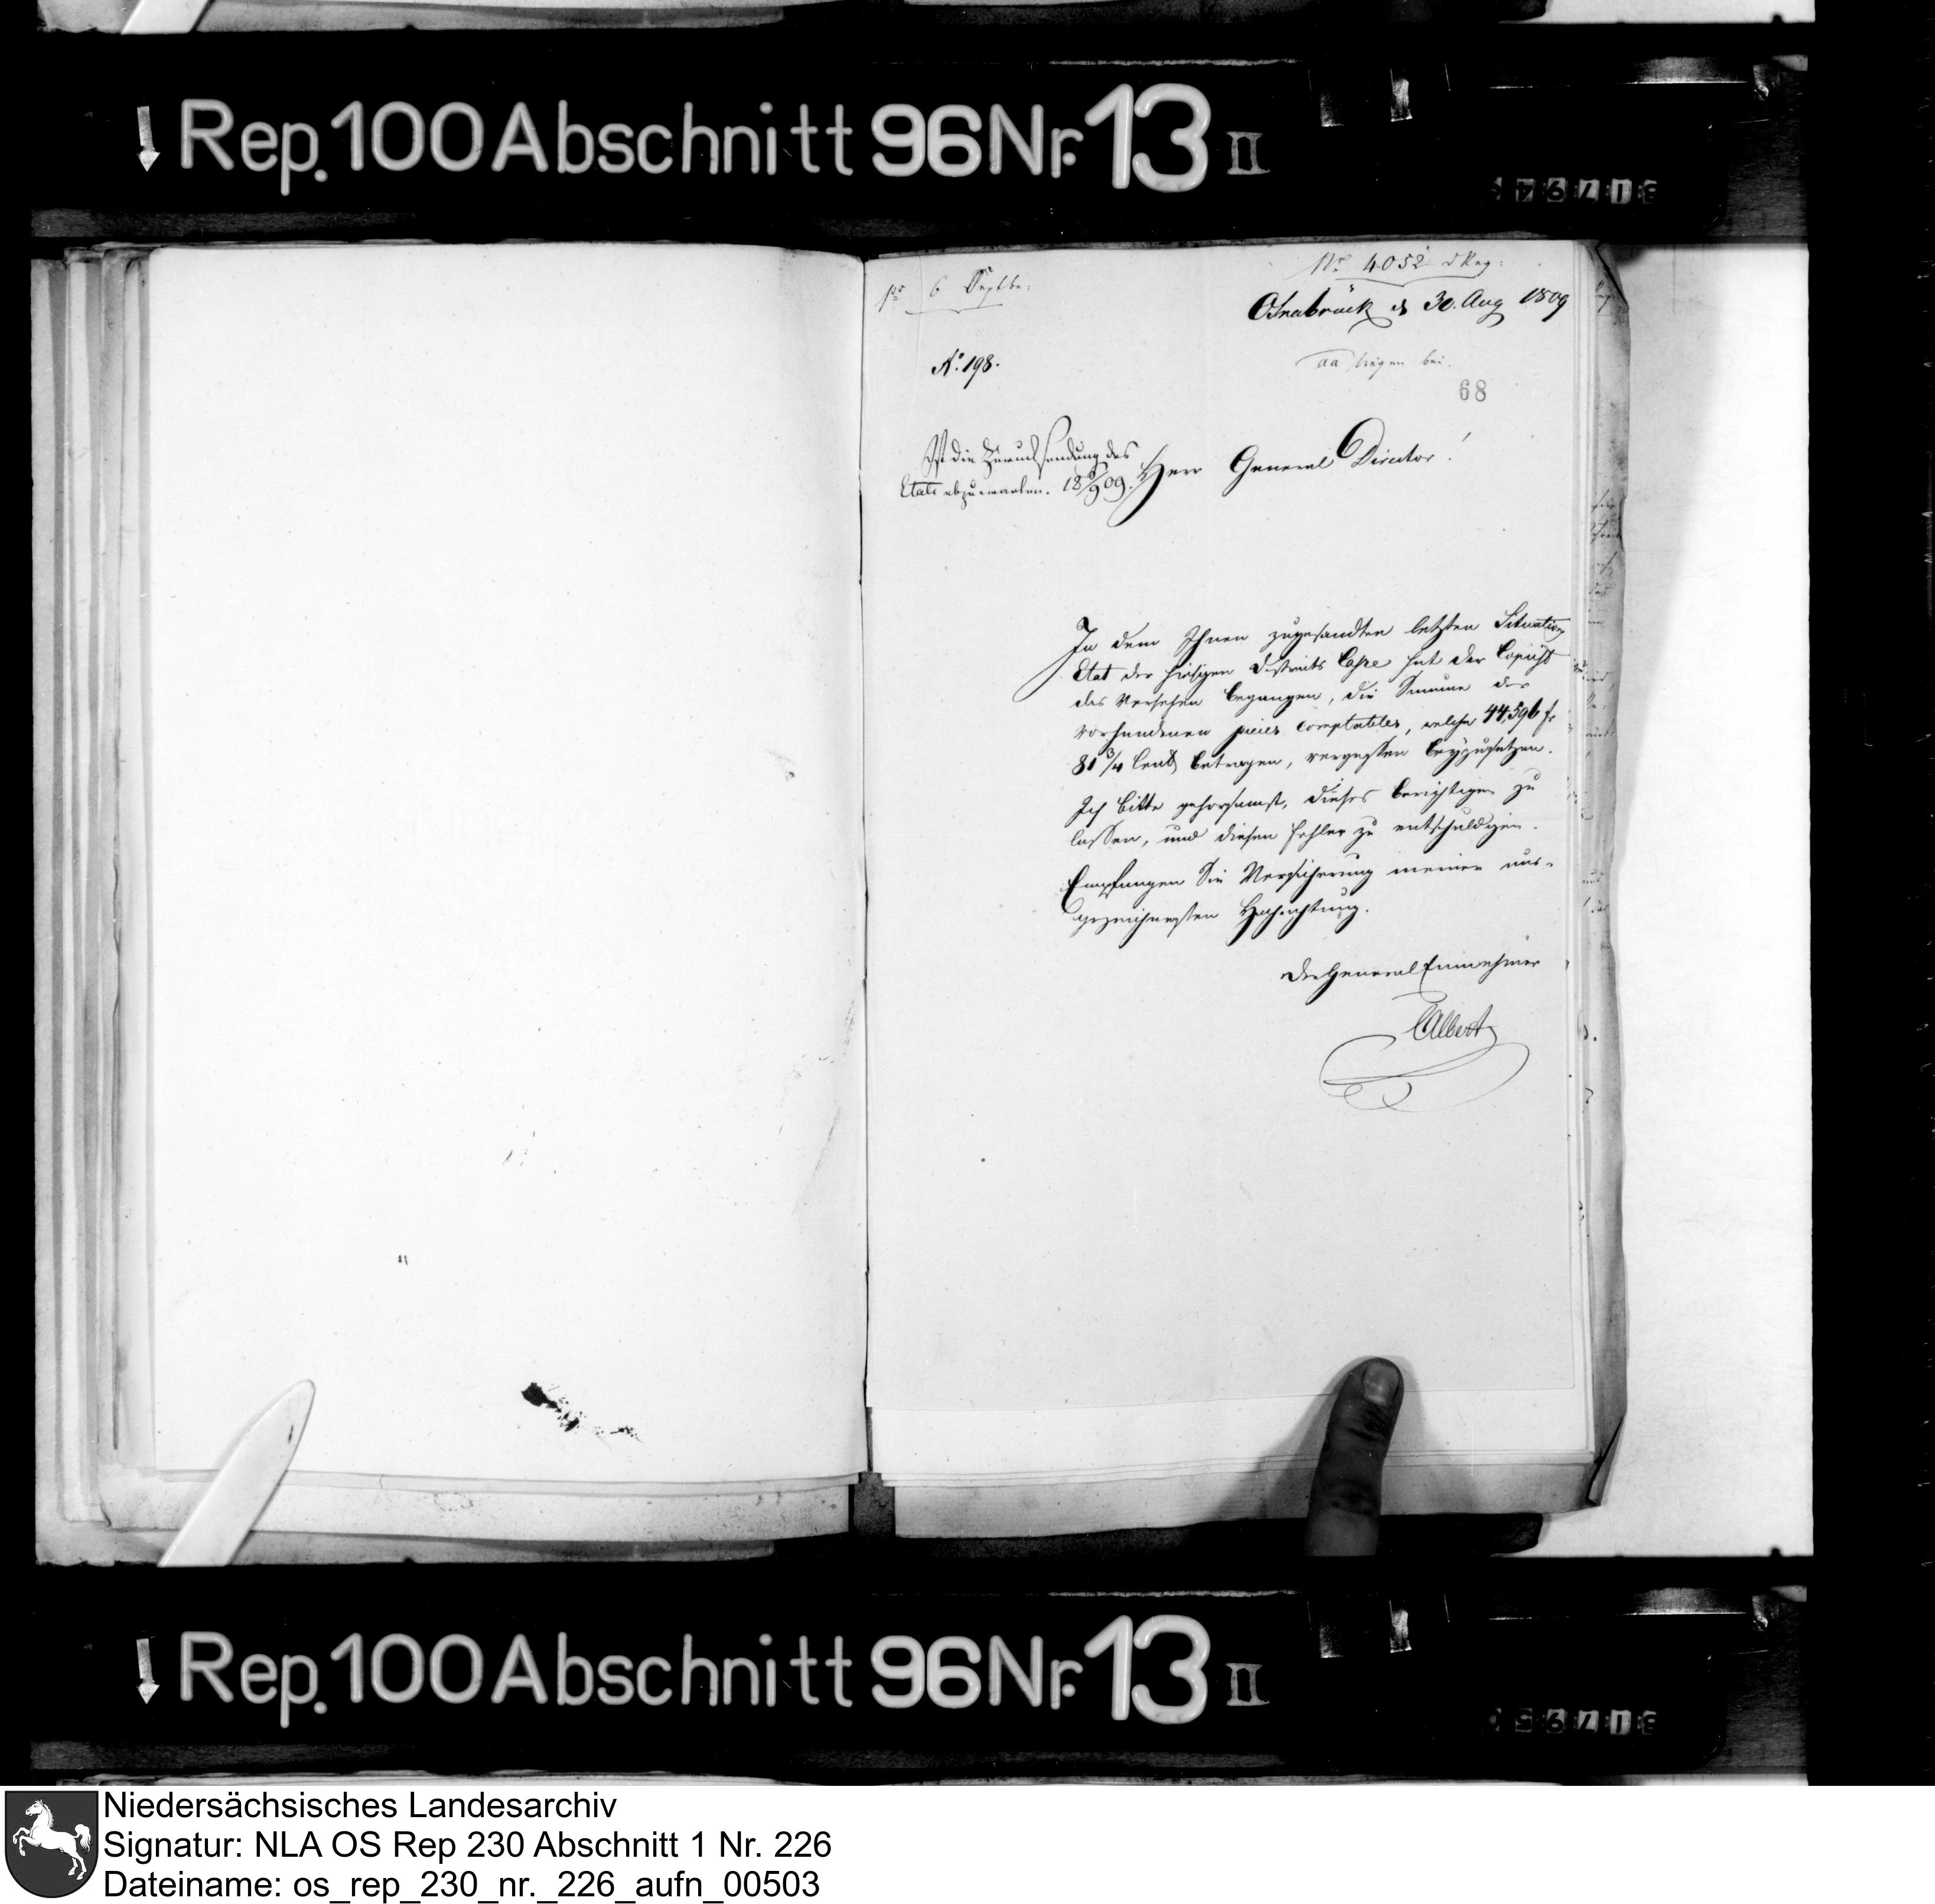 Rep. 100 Abschnitt 96 Nr. 13 II
Nro 4052 d Reg:
pr. 6 Septbr:
Osnabrück d 30. Aug 1809
No. 198.
aa liegen bei.
68
Ist die Zurücksendung des
Etats abzuwarten. 18 6/9 09.
Herr General Director!
In dem Ihnen zugesandten letzten Situations
Etat der hiesigen Districts Casse hat der Copiist
das Versehen begangen, die Summe der
vorhandenen pieces comptables, welche 44,596 fr
81 3/4 Cent betragen, vergessen beyzusetzen.
Ich bitte gehorsamst, dieses berichtigen zu
lassen, und diesen Fehler zu entschuldigen.
Empfangen Sie Versicherung meiner aus-
gezeichnesten Hochachtung.
Der General Einnehmer
Albert
Rep. 100 Abschnitt 96 Nr. 13 II
Niedersächsisches Landesarchiv
Signatur: NLA OS Rep 230 Abschnitt 1 Nr. 226
Dateiname: os_rep_230_nr._226_aufn_00503